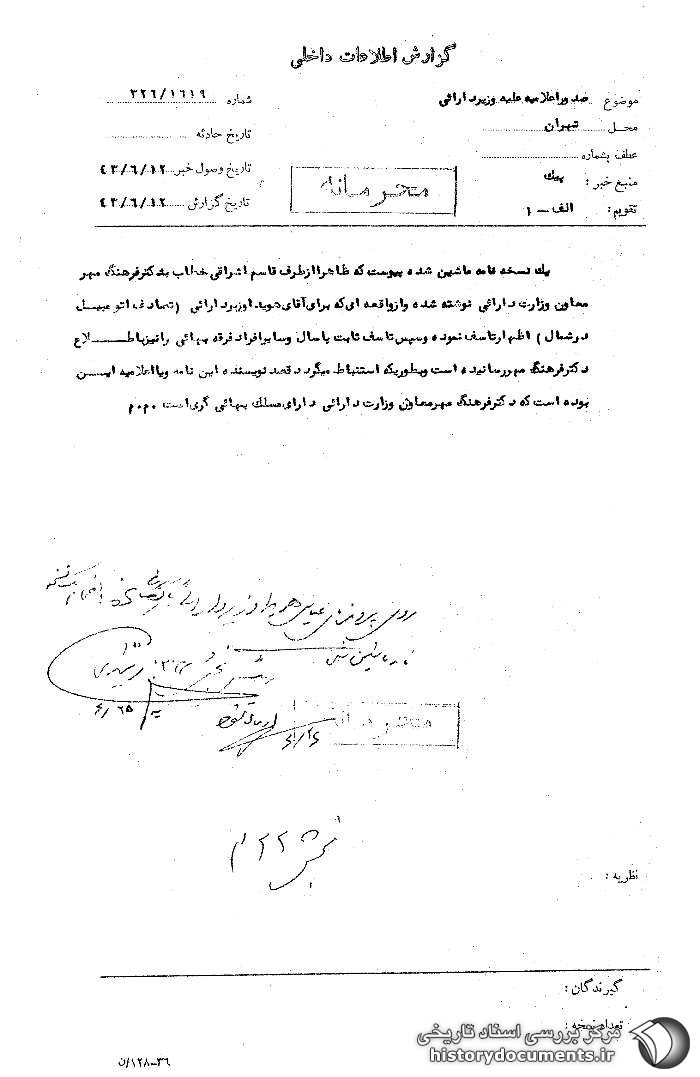 گزارش اطلاعات داخلی
موضوع صدور اعلامیه علیه وزیر دارائی
محل تهران
عطف بشماره
منبع خبر : بیك
تقویم : الف - ۱
شماره ۳۲۶/۱۶۱۹
تاریخ حادثه
تاریخ وصول خبر ۴۳/۶/۱۲
تاریخ گزارش ۴۳/۶/۱۲
محرمانه
یك نسخه نامه ماشین شده پیوست که ظاهرا از طرف قاسم اشراقی خطاب بدکتر فرهنگ مهر
معاون وزارت دارائی نوشته شده و از واقعه ای که برای آقای هویدا وزیر دارائی (تصادف اتومبیل
در شمال) اظهار تاسف نموده و سپس تاسف ثابت پاسال و سایر افراد فرقه بهائی را نیز باطلاع
دکتر فرهنگ مهر رسانیده است و بطوریکه استنباط میگردد قصد نویسنده این نامه و یا اعلامیه این
بوده است که دکتر فرهنگ مهر معاون وزارت دارائی دارای مسلك بهائی گری است م.م
روی پرونده عباس هویدا وزیر دارائی
محرمانه
بخش ۲۲۲
نظریه :
گیرندگان :
تعداد نسخه :
۳۶-۱۲۸/ن
مرکز بررسی اسناد تاریخی
historydocuments.ir